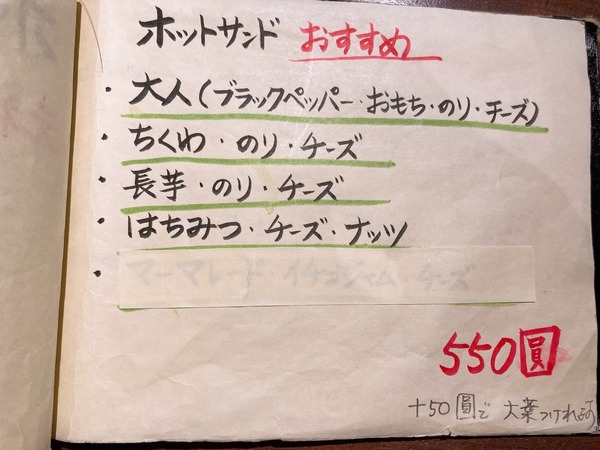 ホットサンド おすすめ
・大人(ブラックペッパー・おもち・のり・チーズ)
・ちくわ・のり・チーズ
・長芋・のり・チーズ
・はちみつ・チーズ・ナッツ
・マーマレード・イチゴジャム・チーズ
550圓
+50圓で 大葉つけれます